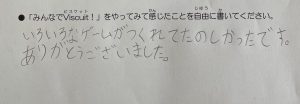 ●「みんなでViscuit！」をやってみて感じたことを自由に書いてください。
いろいろなゲームがつくれてたのしかったです。
ありがとうございました。